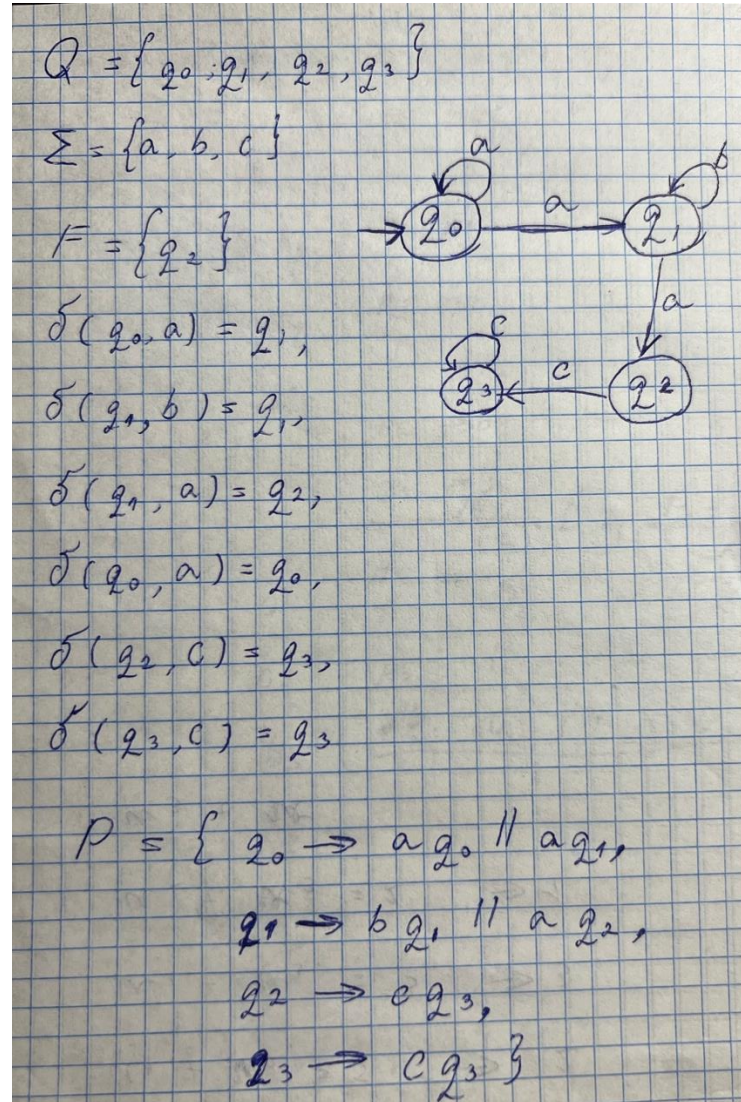 Q = {q0; q1, q2, q3}
Σ = {a, b, c}
F = {q2}
δ(q0, a) = q1,
δ(q1, b) = q1,
δ(q1, a) = q2,
δ(q0, a) = q0,
δ(q2, c) = q3,
δ(q3, c) = q3
a
b
q0
a
q1
a
c
q3
c
q2
P = { q0 → a q0 || a q1,
q1 → b q1 || a q2,
q2 → c q3,
q3 → c q3 }